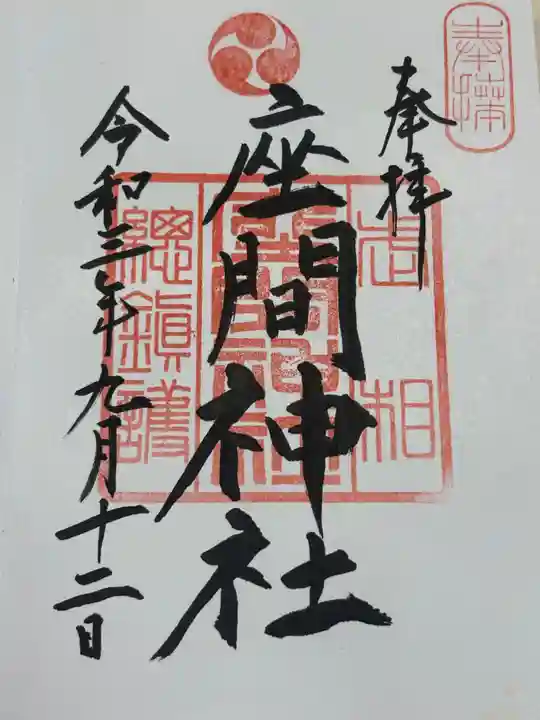 奉拝
奉拝
座間神社
令和三年九月十二日
武相
座間神社
總鎮護